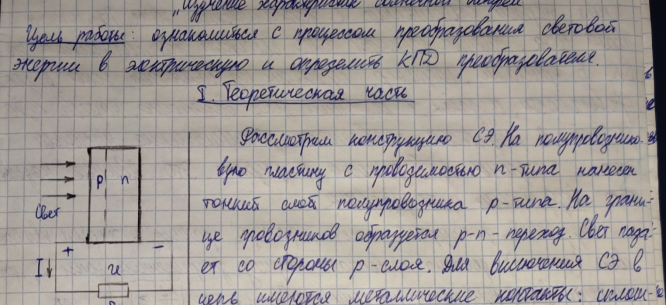 „Изучение характеристик солнечной батареи"
Цель работы: ознакомиться с процессом преобразования световой
энергии в электрическую и определить КПД преобразователя.
I. Теоретическая часть
Рассмотрим конструкцию СЭ. На полупроводнико-
вую пластину с проводимостью n-типа нанесен
тонкий слой полупроводника p-типа. На грани-
це проводников образуется p-n-переход. Свет пада-
ет со стороны p-слоя. Для включения СЭ в
цепь имеются металлические контакты: сплош-
p n
Свет
+ −
I u
R